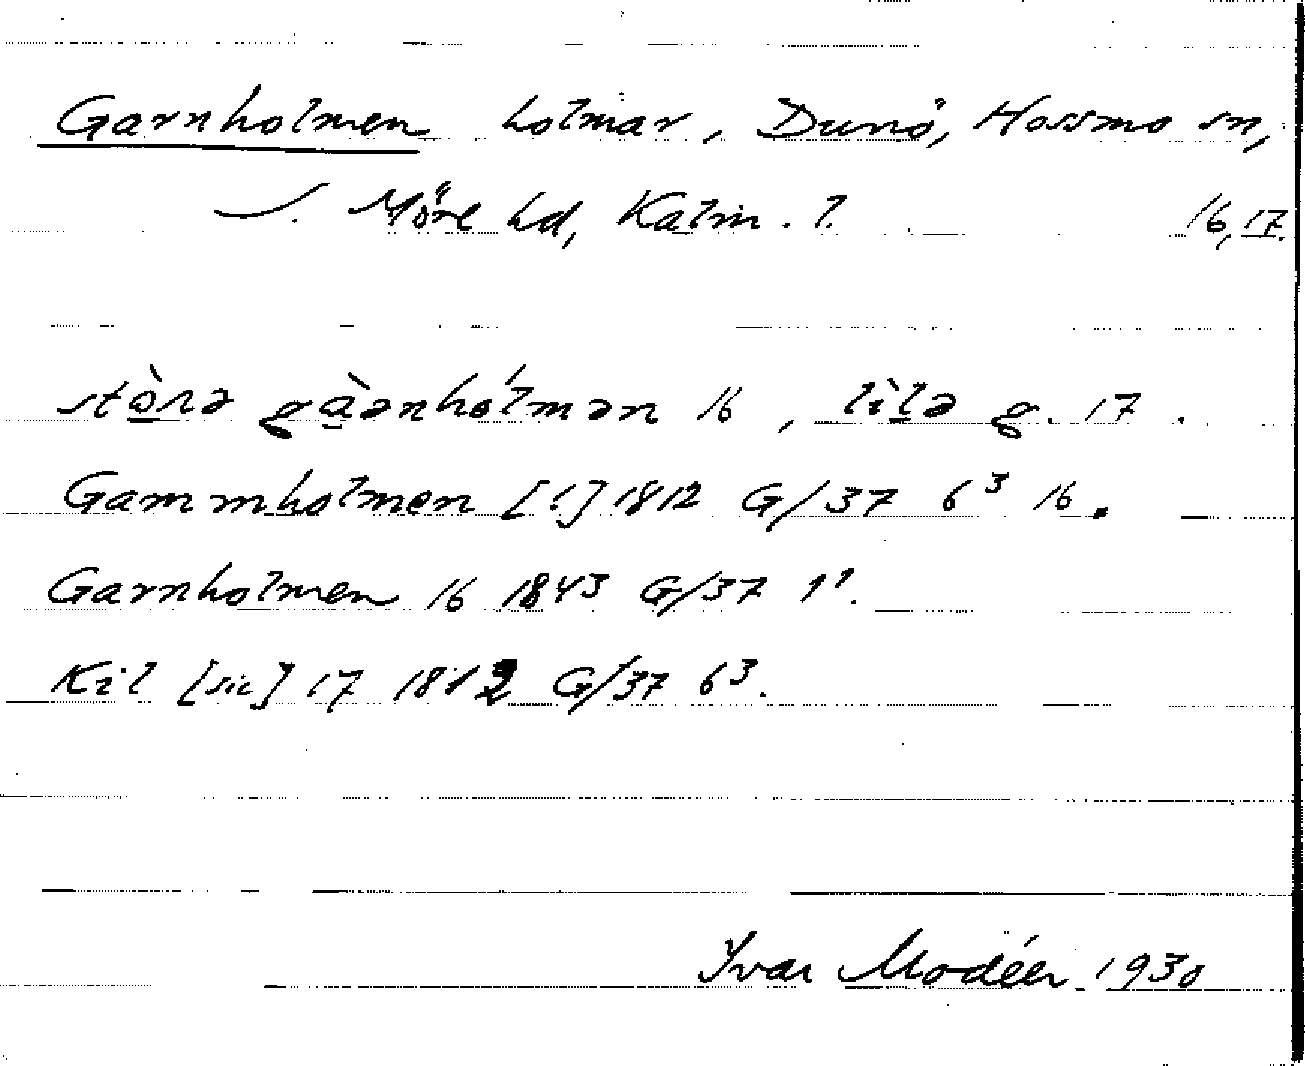 Garnholmen holmar, Dunö, Hossmo sn,
S. Möre hd, Kalm. l. 16, 17.
stòrə gàənhólmən 16, lìlə g. 17.
Gammholmen [!] 1812 G/37 6³ 16.
Garnholmen 16 1843 G/37 1¹.
Kil [sic] 17 1812 G/37 6³.
Ivar Modéer 1930